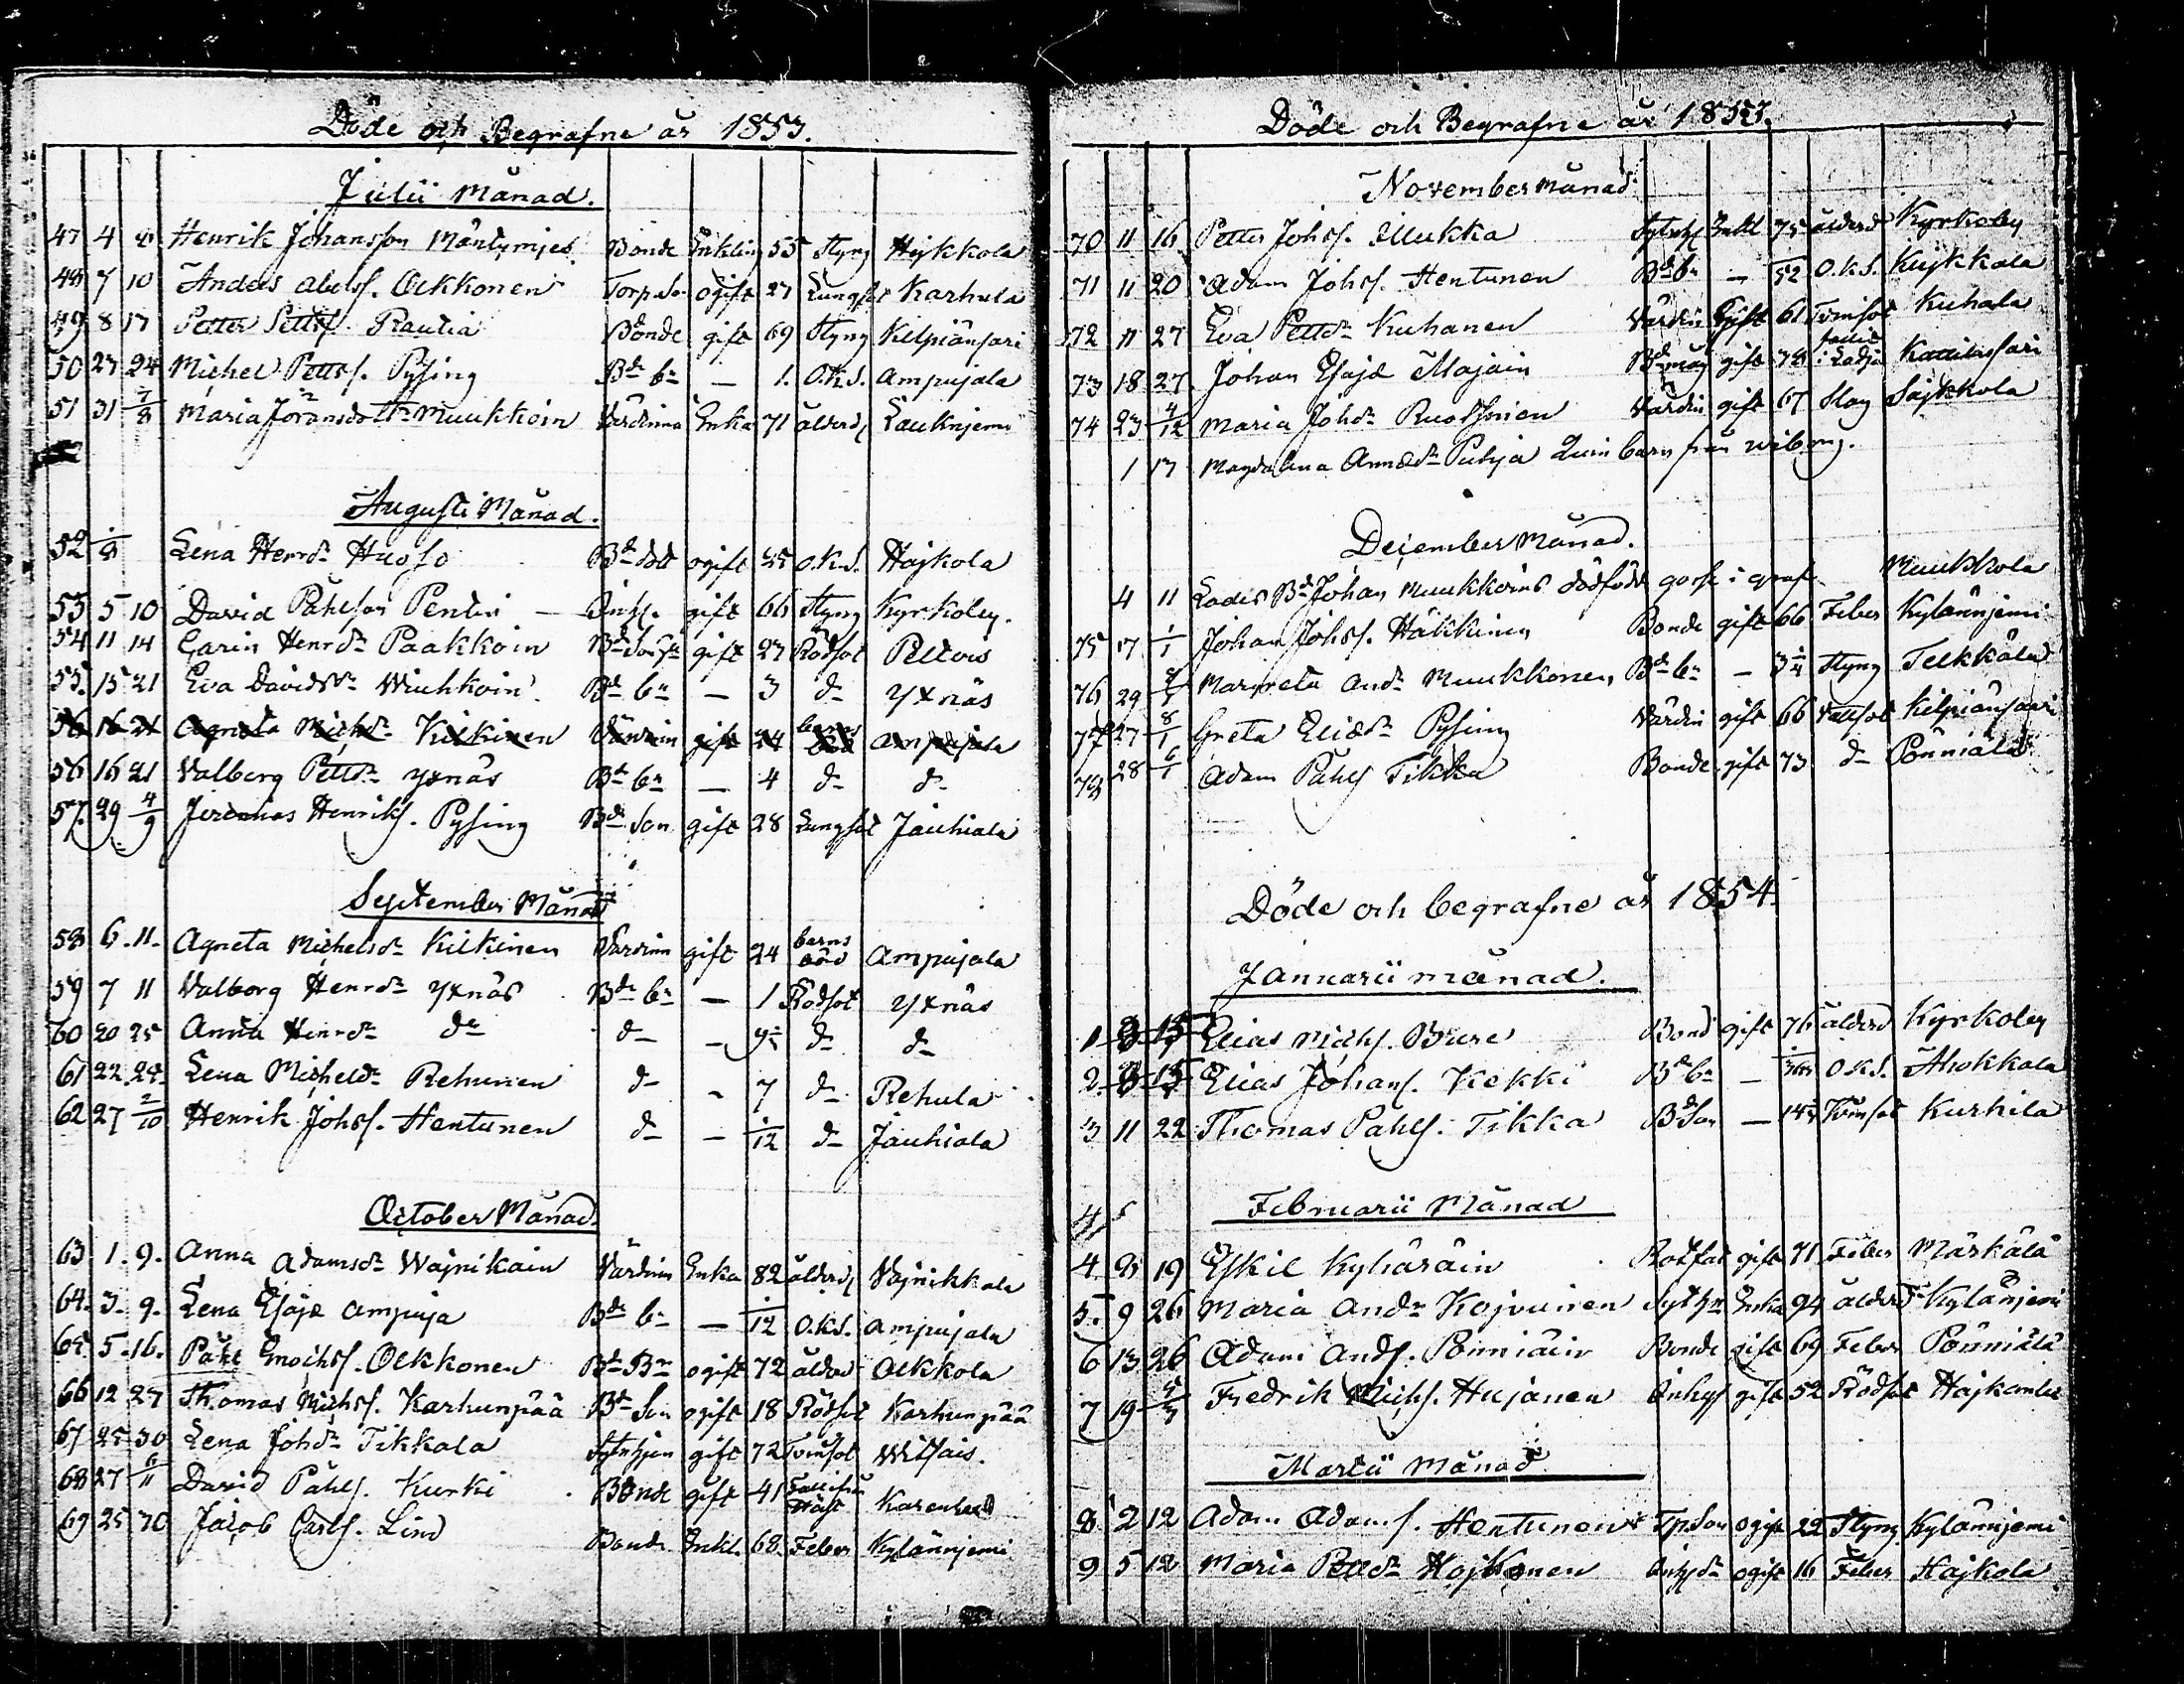 Döde och Begrafne år 1853.
Julii Månad.
47 4 Henrik Johansson Mäntymies Bonde Enkling 55 Styng Hejkkola
48 7 10 Anders Abelss. Olkkonen Torp.So ogift 27 Lungs Karhula
49 8 17 Petter Pettss. Rautia Bonde gift 69 Styng Kilpiänsari
50 23 24 Michel Pettss. Pysing Bde bn — 1. O.K.S. Ampujala
51 31 7/8 Maria Göransdottr Muukkoin Värdinna Enka 71 ålderd Lauknjemi
Augusti Månad.
52 Lena Henrdr Husso Bde dott ogift 25 O.K.S. Hajkola
53 5 10 David Påhlson Pentti — Inhs. gift 66 Styng Kyrkoby.
54 11 14 Carin Henrdr Paakkoin gift 27 Rödsot Pellois
55. 15 21 Eva Davidsdr Wiuhkoin Bde bn — 3 do yxnäs
56 16 21 Agneta Michdr Kilkinen Värdinn gift 24 barns Ampujala
56 16 21 Valborg Pettdr yxnäs Bde bn — 4 do do
57. 29 4/9 Jeremias Henriks. Pysing Bde Son gift 28 Lungsot Jauhiala
September Månad
58 6. 11. Agneta Michelsdr Kilkinen Värdinn gift 24 barns börd Ampujala
59 7 11 Valborg Henrdr yxnäs Bde bn — 1 Rödsot yxnäs
60 20 25 Anna Henrdr do do — do do
61 22. 24. Lena Micheldr Rehunen do - 7 do Rehula
62 27 2/10 Henrik Johss. Hentunen do — 1/12 do Jauhiala
October Månad.
63. 1. 9. Anna Adamsdr Wajnikain Värdinn Enka 82 ålderd Vajnikkala
64. 3. 9. Lena Esajæ Ampuja Bde bn — 1/12 O.K.S. Ampujala
65. 5. 16. Påhl Enochss. Olkkonen Bde Br ogift 72 ålder Olkkola
66 12 27 Thomas Michss. Karhunpää Bde Son ogift 18 Rödsot Karhunpää
67 25 30 Lena Johdr Tikkala gift 72 Tvinsot Witsais.
68 27 6/11 David Påhls. Kurki Bonde gift 41
69 25 30 Jacob Carls. Lind Bonde Enkl. 68. Feber Kylännjemi
Döde och Begrafne år 1853.
November månad
70 11 16 Petter Johss. Mukka Enkl 75 ålderd Kyrkoby
71 11 20 Adam Johss. Hentunen Bde bn — 52 O.K.S. Kujkkala
72 11 27 Eva Pettdr Kuhanen Värdin Gift 61 Tvinsot Kuhala
73 18 27 Johan Esajæ Majain Bde måg gift
74 23 4/12 Maria Johdr Ruotsinen Värdin gift 67 Slag Sajkkola
1 17 Magdalena Annædr Putja barn från Wiborg.
December Månad.
4 11 Bde Johan Muukkoins dödfödd i graf Muukkola
75 17 1/1 Johan Johss. Häkkinen Bonde gift 66 Feber Kylännjemi
76 29 Margreta Anddr Muukkonen Bde bn — Styng Telkkälä
77 27 8/1 Greta Eliædr Pysing Värdin gift 66 Vattsot Kilpiänsaari
78 28 6/1 Adam Påhls Tikka Bonde gift 73 do Pönniälä
Döde och begrafne år 1854.
Januarii månad.
1 Elias Michs. Bure Bond gift 76 ålderd Kyrkoby
2 Elias Johans. Kekki Bde bn — O.K.S. Ahokkala
3 11 22 Thomas Påhls. Tikka Bde Son — Tvinsot Kurkila
4 5
Februarii Månad
4 19 Eskil Kyhäräin Rotfat gift 71 Feber Märkälä
5. 9 26 Maria Anddr Kojvuinen Enka 94 ålderd Kylänjemi
6 13 26 Adam Ands. Pönniäin Bonde gift 69 Feber Pönniälä
7 19 Fredrik Michs. Hujanen Inhys gift 52 Rödsot
Martii Månad
8 2 12 Adam Adams. Hentunen Tp.Son ogift 22 Styng Kylännjemi
9 5 12 Maria Pettdr Hojkonen Inhsdr ogift 16 Feber Hajkola